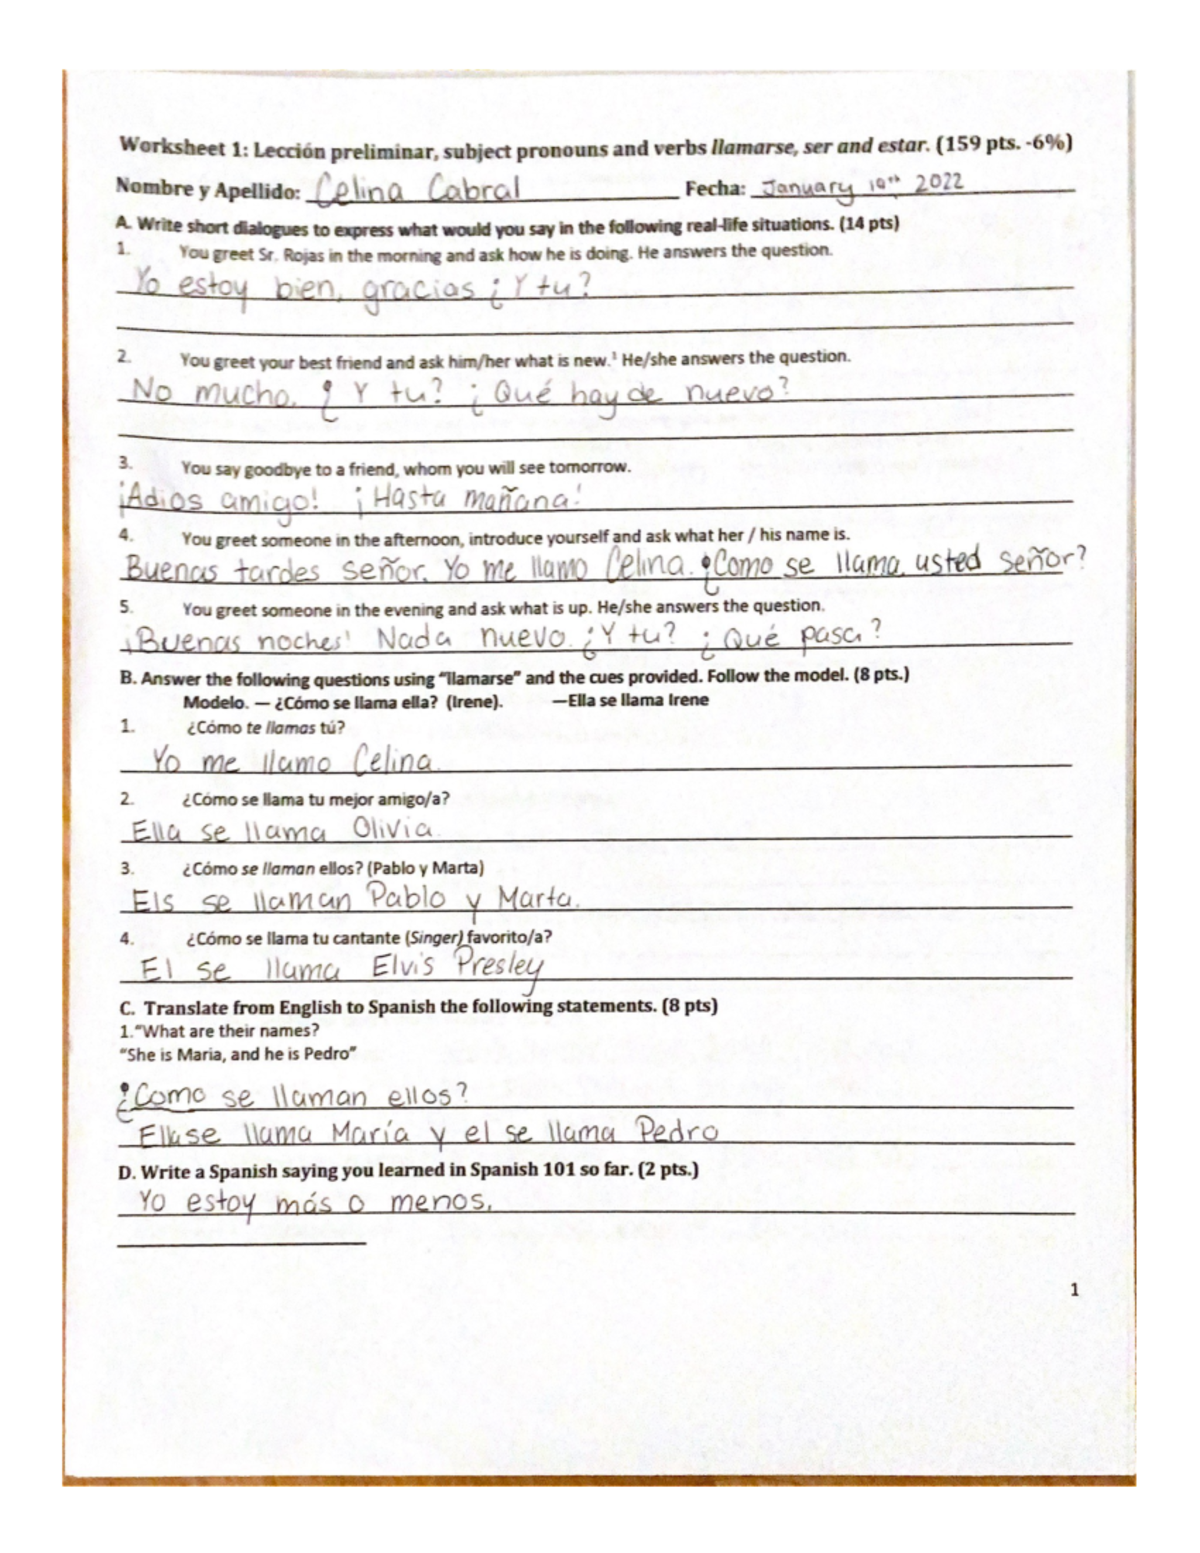 Worksheet 1: Lección preliminar, subject pronouns and verbs llamarse, ser and estar. (159 pts. -6%)
Nombre y Apellido: Celina Cabral Fecha: January 19th, 2022
A. Write short dialogues to express what would you say in the following real-life situations. (14 pts)
1. You greet Sr. Rojas in the morning and ask how he is doing. He answers the question.
Yo estoy bien, gracias ¿Y tu?
2. You greet your best friend and ask him/her what is new.¹ He/she answers the question.
No mucho. ¿Y tu? ¿Qué hay de nuevo?
3. You say goodbye to a friend, whom you will see tomorrow.
¡Adios amigo! ¡Hasta mañana!
4. You greet someone in the afternoon, introduce yourself and ask what her / his name is.
Buenas tardes señor. Yo me llamo Celina. ¿Como se llama usted señor?
5. You greet someone in the evening and ask what is up. He/she answers the question.
¡Buenas noches! Nada nuevo. ¿Y tu? ¿Qué pasa?
B. Answer the following questions using “llamarse” and the cues provided. Follow the model. (8 pts.)
Modelo. — ¿Cómo se llama ella? (Irene). —Ella se llama Irene
1. ¿Cómo te llamas tú?
Yo me llamo Celina.
2. ¿Cómo se llama tu mejor amigo/a?
Ella se llama Olivia.
3. ¿Cómo se llaman ellos? (Pablo y Marta)
Els se llaman Pablo y Marta.
4. ¿Cómo se llama tu cantante (Singer) favorito/a?
El se llama Elvis Presley
C. Translate from English to Spanish the following statements. (8 pts)
1.“What are their names?
“She is Maria, and he is Pedro”
¿Como se llaman ellos?
Ella se llama María y el se llama Pedro
D. Write a Spanish saying you learned in Spanish 101 so far. (2 pts.)
Yo estoy más o menos.
1